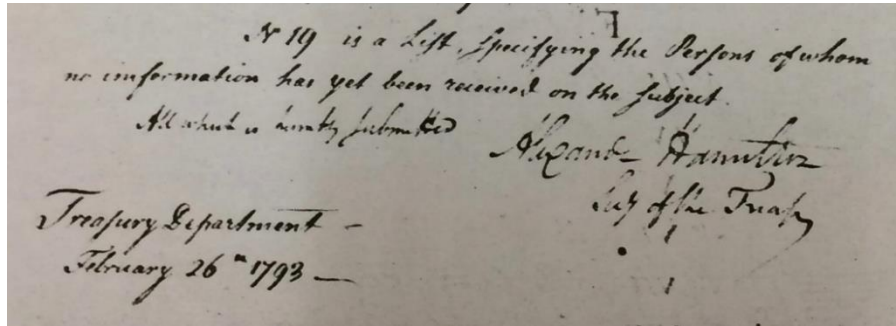 No 19 is a List, Specifying the Persons of whom
no imformation has yet been received on the subject.
All which is humbly submitted
Alexander Hamilton
Secy of the Treasy
Treasury Department –
February 26th 1793 –